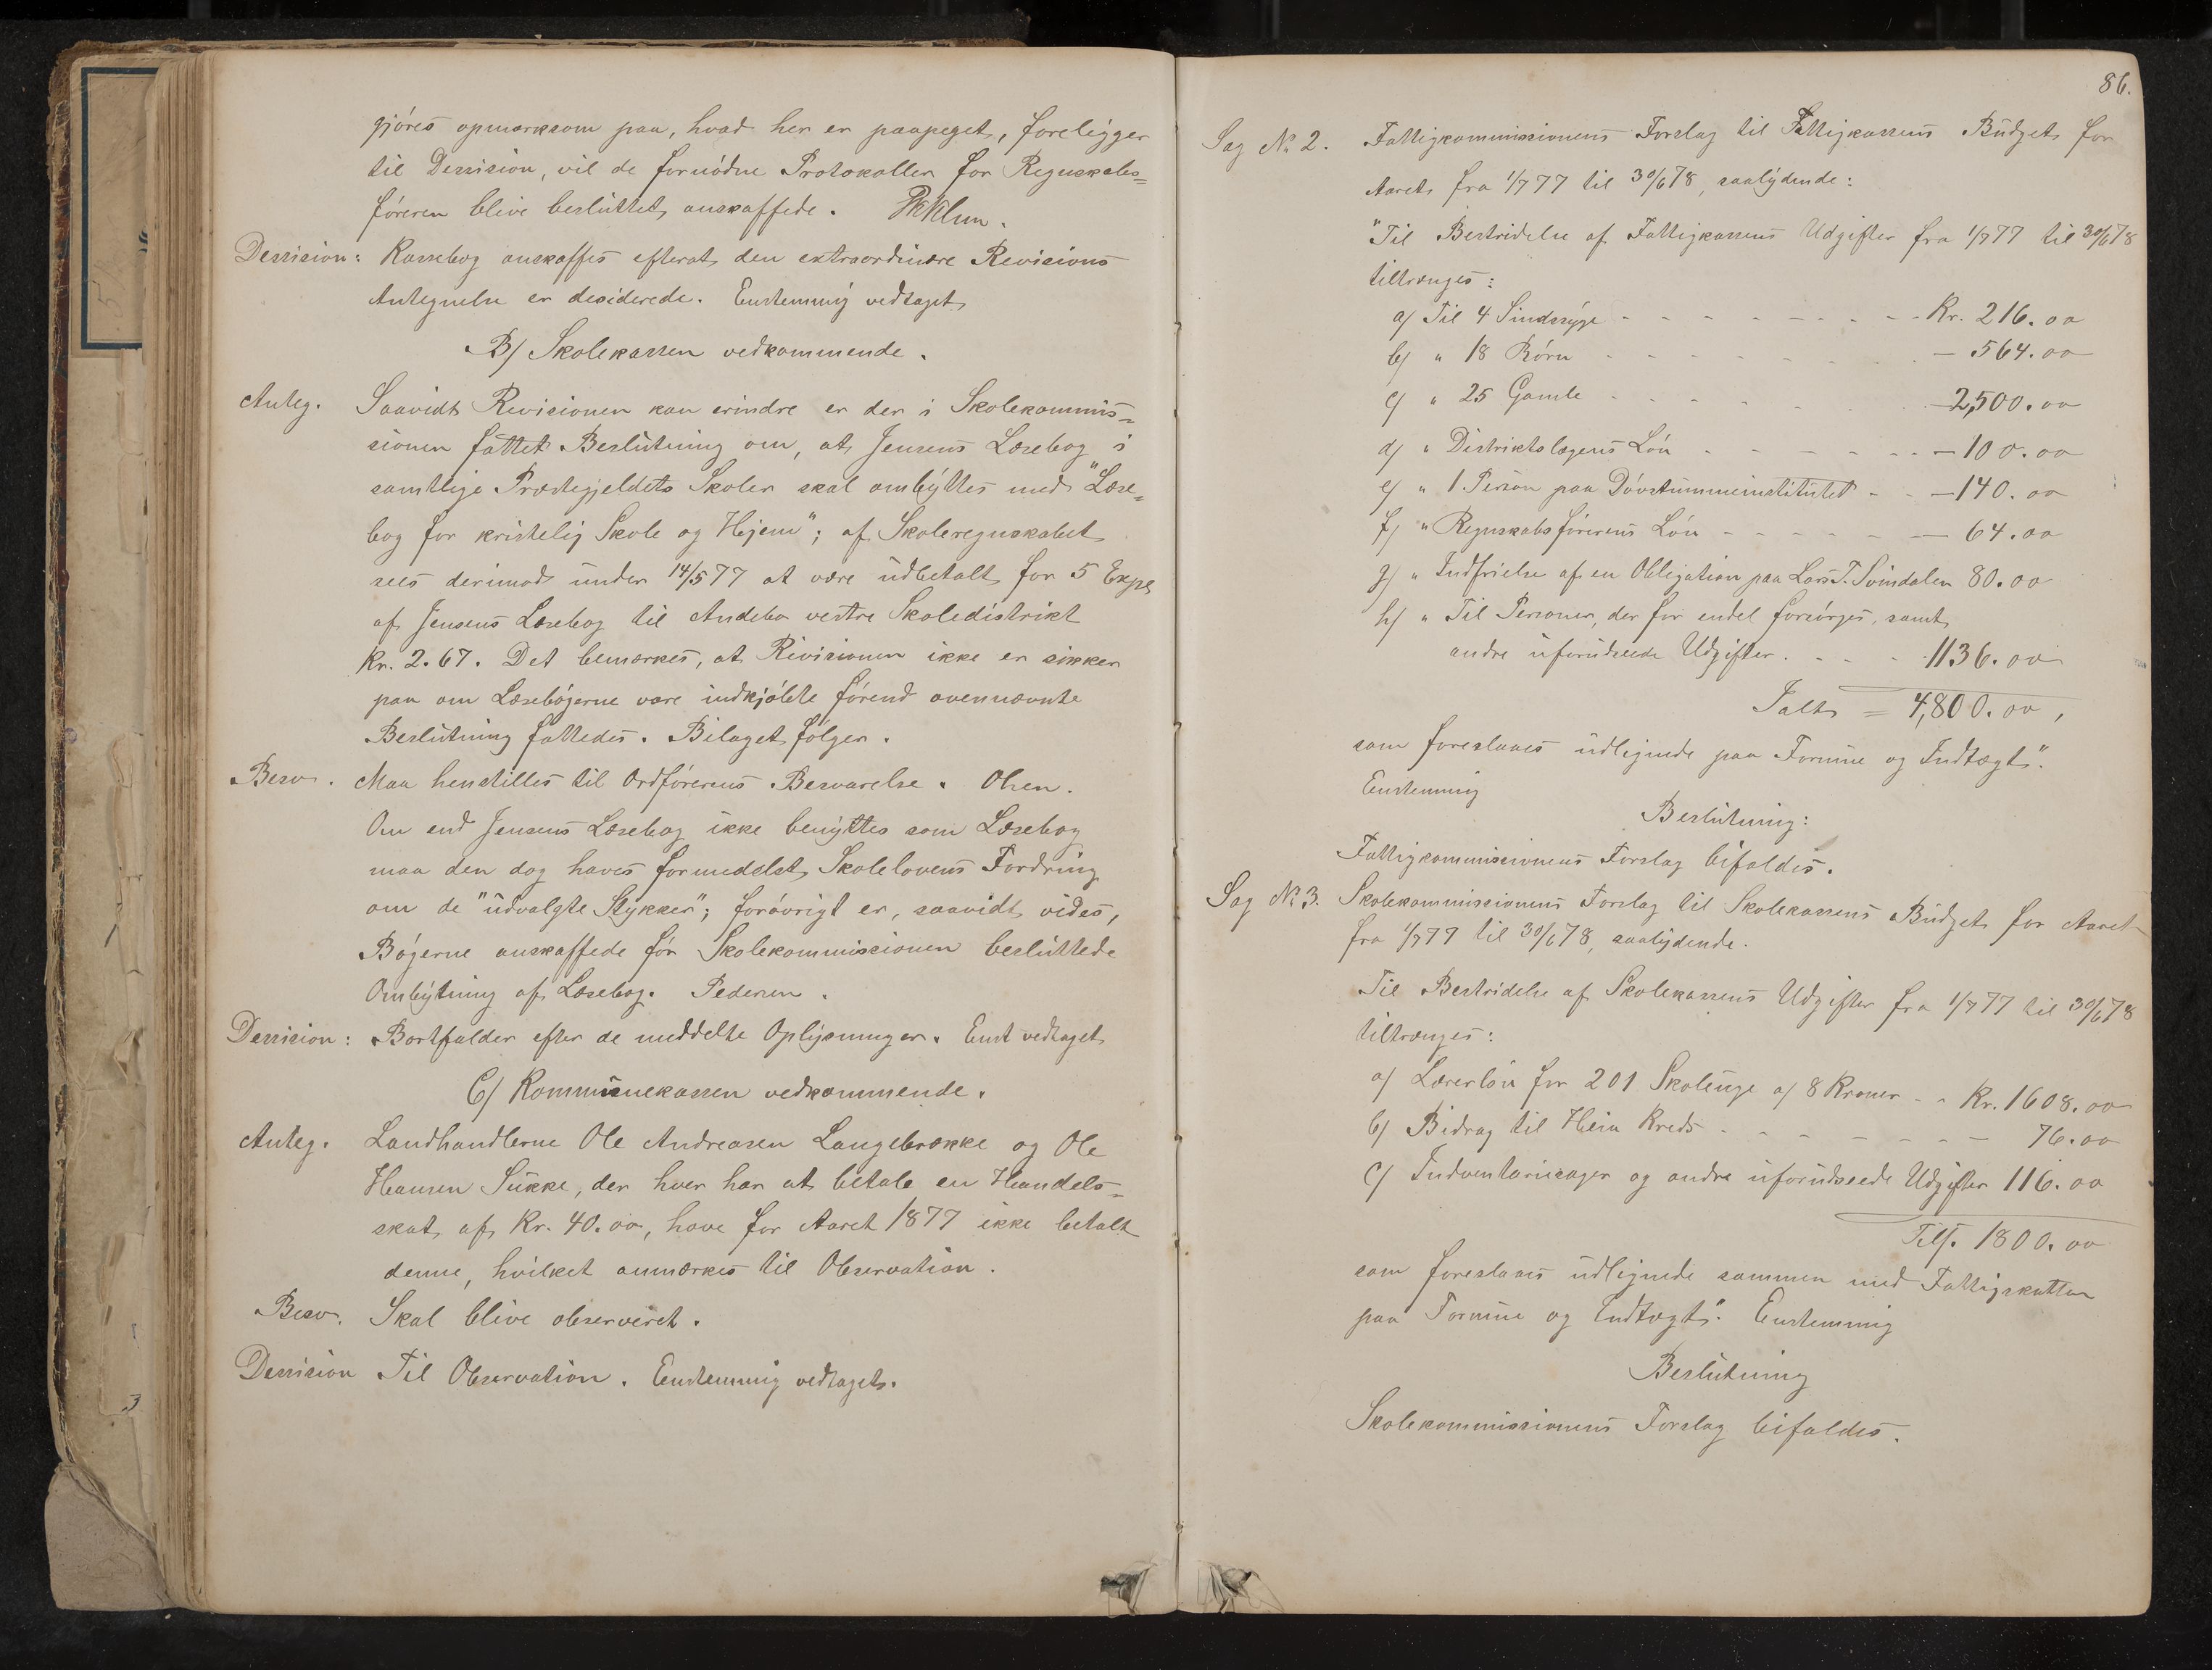 gjøres opmærksom paa, hvad her er paapeget, foreligger
til Dessision, vil de fornødne Protokoller for Regnskabs=
føreren blive besluttet anskaffede.
Dessision: Kassebog anskaffes efterat den extraordinære Revisions
Antegnelse er desiderede. Enstemmig vedtaget
B/ Skolekassen vedkommende.
Anteg. Saavidt Revisionen kan erindre er der i Skolekommis=
sionen fattet Beslutning om, at Jensens Læsebog i
samtlige Præstegjeldets Skoler skal ombyttes med "Læse=
bog for kristelig Skole og Hjem"; af Skoleregnskabet
sees derimod under 14/5 77 at være udbetalt for 5 Expl
af Jensens Læsebog til Andebo vestre Skoledistrikt
Kr. 2.67. Det bemærkes, at Revisionen ikke er sikker
paa om Læsebøgerne vare indkjøbte førend ovennævnte
Beslutning fattedes. Bilaget følger.
Besv. Maa henstilles til Ordførerens Besvarelse. Olsen.
Om end Jensens Læsebog ikke benyttes som Læsebog
maa den dog haves formedelst Skolelovens Fordring
om de "udvalgte Stykker"; forøvrigt er, saavidt vides,
Bøgerne anskaffede før Skolekommissionen besluttede
Ombytning af Læsebog. Pedersen.
Dessision: Bortfalder efter de meddelte Oplysninger. Enst vedtaget
C/ Kommunekassen vedkommende.
Anteg. Landhandlerne Ole Andreasen Langebrække og Ole
Hansen Sukke, der hver har at betale en Handels=
skat af Kr. 40.00, have for Aaret 1877 ikke betalt
denne, hvilket anmærkes til Observation.
Besv. Skal blive observeret.
Dessision Til Observation. Enstemmig vedtaget.
86.
Sag No 2. Fattigkommissionens Forslag til Fattigkassens Budget for
Aaret fra 1/7 77 til 30/6 78, saalydende:
"Til Bestridelse af Fattigkassens Udgifter fra 1/7 77 til 30/6 78
tiltrænges:
a/ Til 4 Sindssyge - - - - - - - - Kr. 216.00
b/ " 18 Børn - - - - - - - - - 564.00
c/ " 25 Gamle - - - - - - - 2,500.00
d/ " Distriktslægens Løn - - - - - - - 100.00
e/ " 1 Person paa Døvstummeinstitutet - - - 140.00
f/ " Regnskabsførerens Løn - - - - - - - 64.00
g/ " Indfrielse af en Obligation paa Lars T. Svindalen 80.00
h/ " Til Personer, der for endel forsørges, samt
andre uforudseede Udgifter. - - - - 1136.00
Ialt = 4,800.00,
som foreslaaes udlignede paa Formue og Indtægt".
Enstemmig
Beslutning:
Fattigkommissionens Forslag bifaldes.
Sag No 3. Skolekommissionens Forslag til Skolekassens Budget for Aaret
fra 1/7 77 til 30/6 78, saalydende.
Til Bestridelse af Skolekassens Udgifter fra 1/7 77 til 30/6 78
tiltrænges:
a/ Lærerløn for 201 Skoleuge a/ 8 Kroner - - Kr. 1608.00
b/ Bidrag til Hein Kreds - - - - - - - - 76.00
c/ Indventariesager og andre uforudseede Udgifter 116.00
Tils. 1800.00
som foreslaaes udlignede sammen med Fattigskatten
paa Formue og Indtægt". Enstemmig
Beslutning
Skolekommissionens Forslag bifaldes.